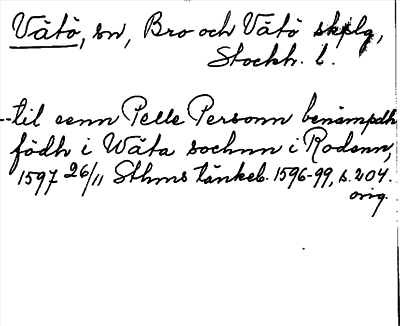 Vätö, sn, Bro och Vätö skplg,
Stockh. l.
--til eenn Pelle Personn benämpdh
födh i Wäta sochnn i Rodenn,
1597 26/11 Sthms tänkeb. 1596-99, s. 204.
orig.